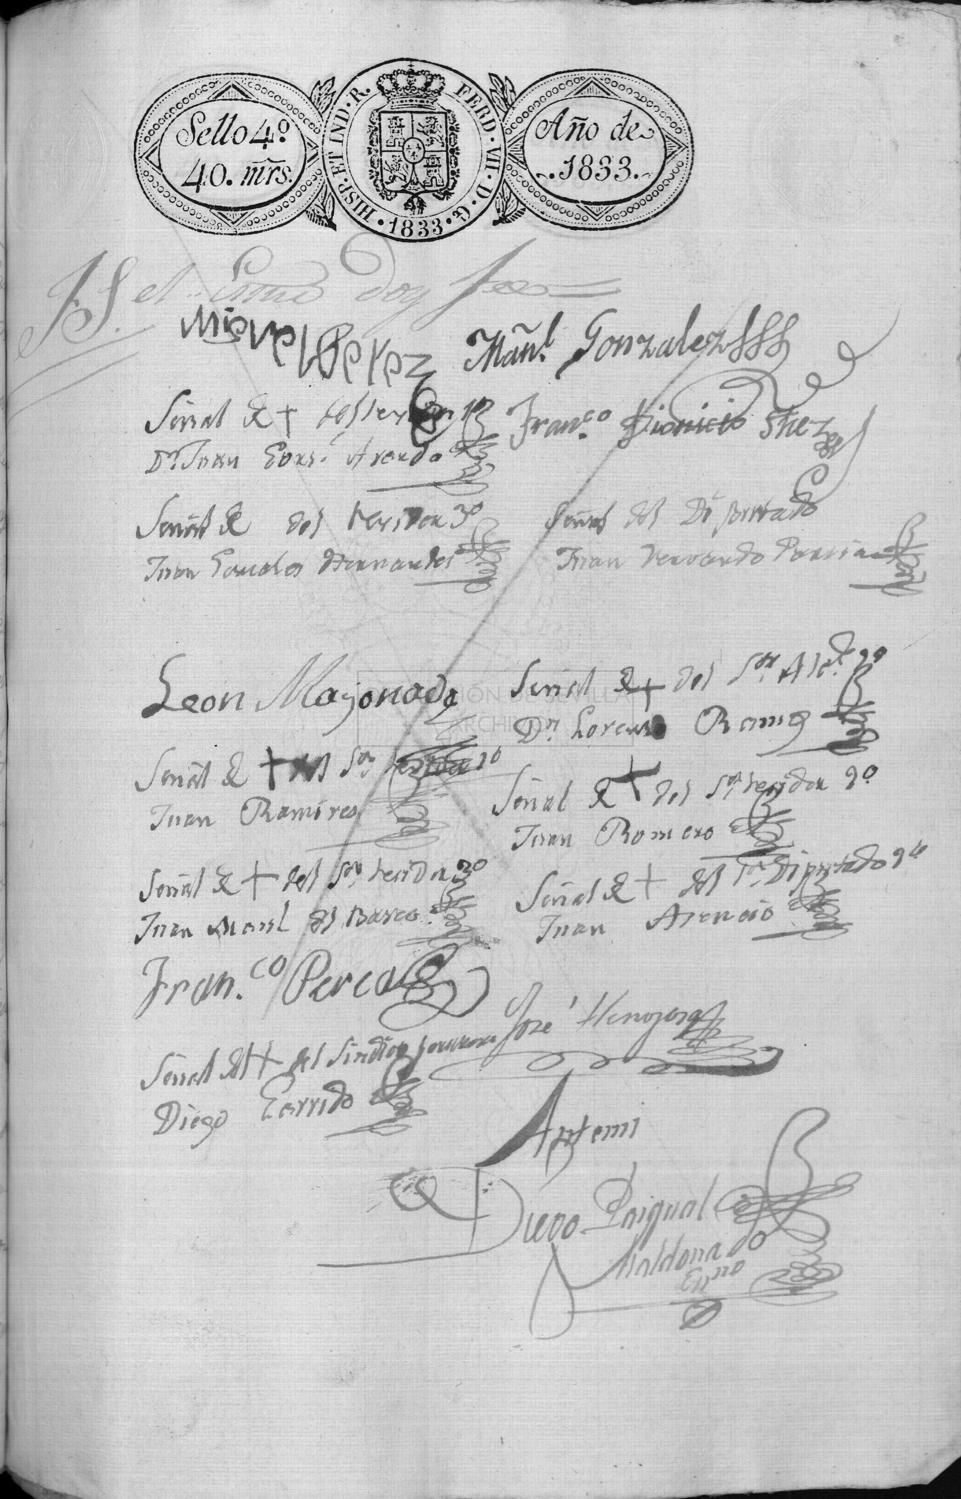 Sello 4º
40. mrs.
HISP. ET IND. R. FERD. VII. D. G. 1833.
Año de
1833.
el Essno doy fee
Miguel Perez
Man.l Gonzalez
Señal de + del
Dn Juan Gons.z
Fran.co Dionicio Shez
Señal de del Rexidor 3º
Juan Gonzales Hernandes
Señal del Diputado
Juan Bernardo
Leon Majonada
Señal de + del Sor Alc.de 2º
Dn Lorenzo Ramos
Señal de + del Sor Rexidor 1º
Juan Ramires
Señal de + del Sor Rexidor 2º
Juan Romero
Señal de + del Sor Rexidor 3º
Juan Manl del Barco
Señal de + del Sor Diputado 2do
Juan Asencio
Fran.co Perea
José Henojosa
Señal de + del Sindico
Diego Garrido
Antemi
Diego Pasqual
Maldonado
Essno